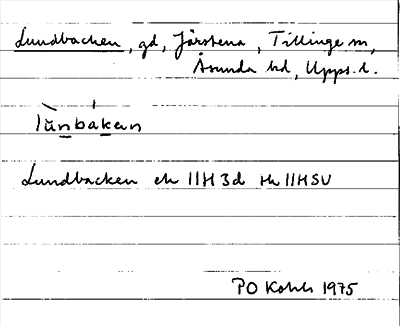 Lundbacken, gd, Järstena, Tillinge sn,
Åsunda hd, Upps. l.
lùnbákan
Lundbacken ek 11H 3d Hk 11HSV
PO Kohls 1975